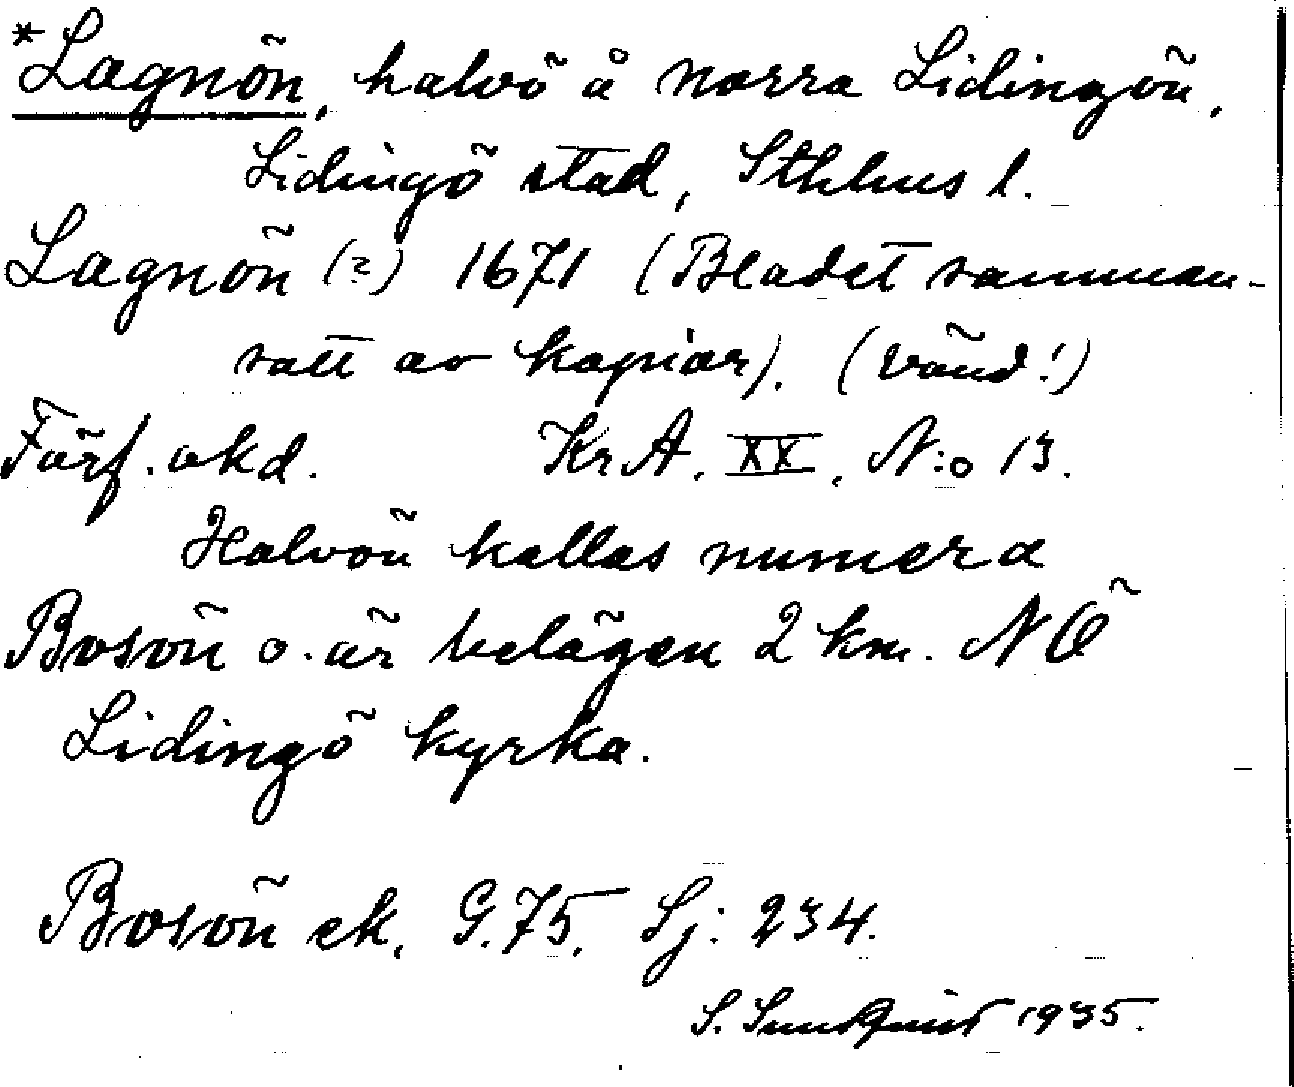 *Lagnön, halvö å norra Lidingön,
Lidingö stad, Sthlms l.
Lagnön (?) 1671 (Bladet samman-
satt av kopior). (vänd!)
Förf. okd. Kr A. XX, N:o 13.
Halvön kallas numera
Bosön o. är belägen 2 km. NÖ
Lidingö kyrka.
Bosön ek. G. 75, Sj: 234.
S. Sundquist 1935.